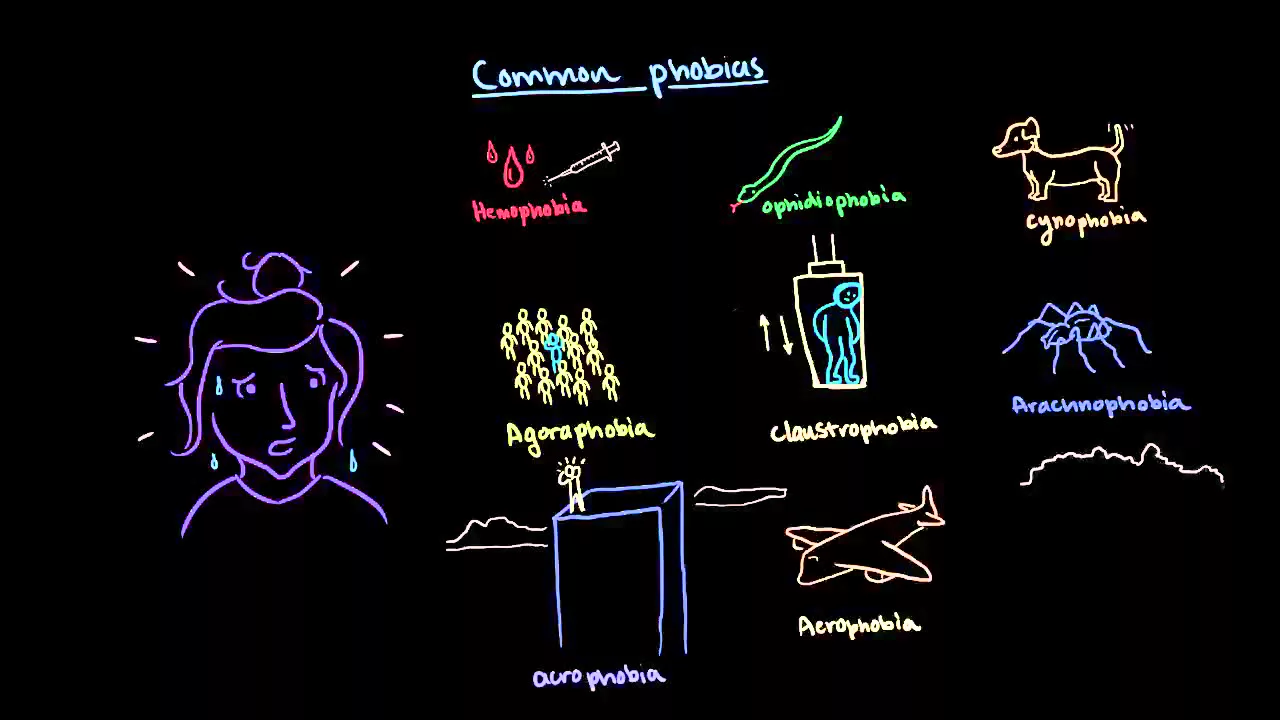 Common phobias
Hemophobia
ophidiophobia
cynophobia
Agoraphobia
Claustrophobia
Arachnophobia
Aerophobia
acrophobia